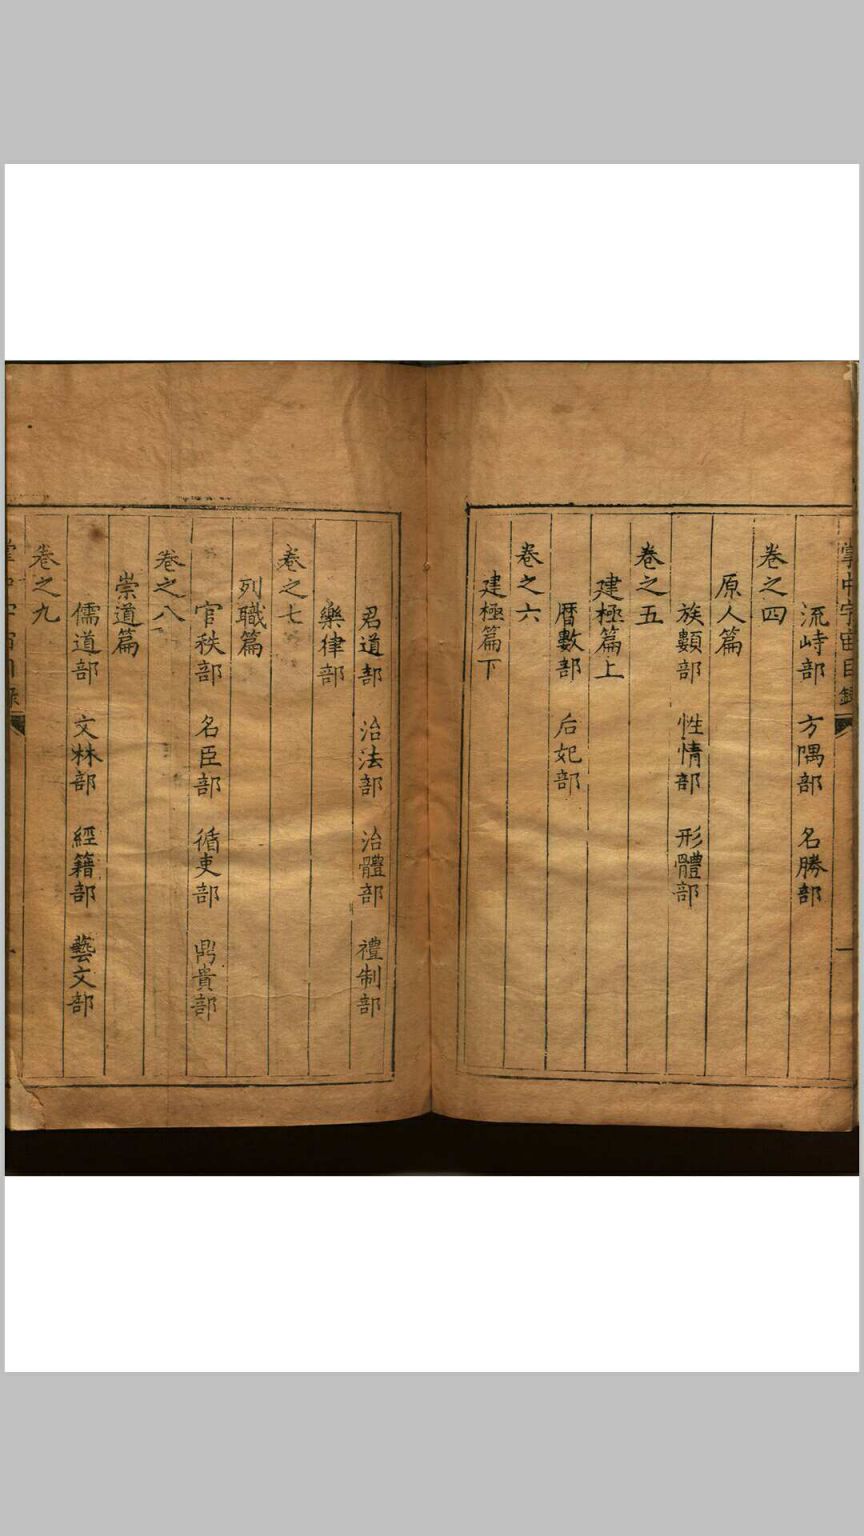 掌中宇宙目錄
流峙部　方隅部　名勝部
卷之四
原人篇
族類部　性情部　形體部
卷之五
建極篇上
曆數部　后妃部
卷之六
建極篇下
君道部　治法部　治體部　禮制部
樂律部
卷之七
列職篇
官秩部　名臣部　循吏部　鼎貴部
卷之八
崇道篇
儒道部　文林部　經籍部　藝文部
卷之九